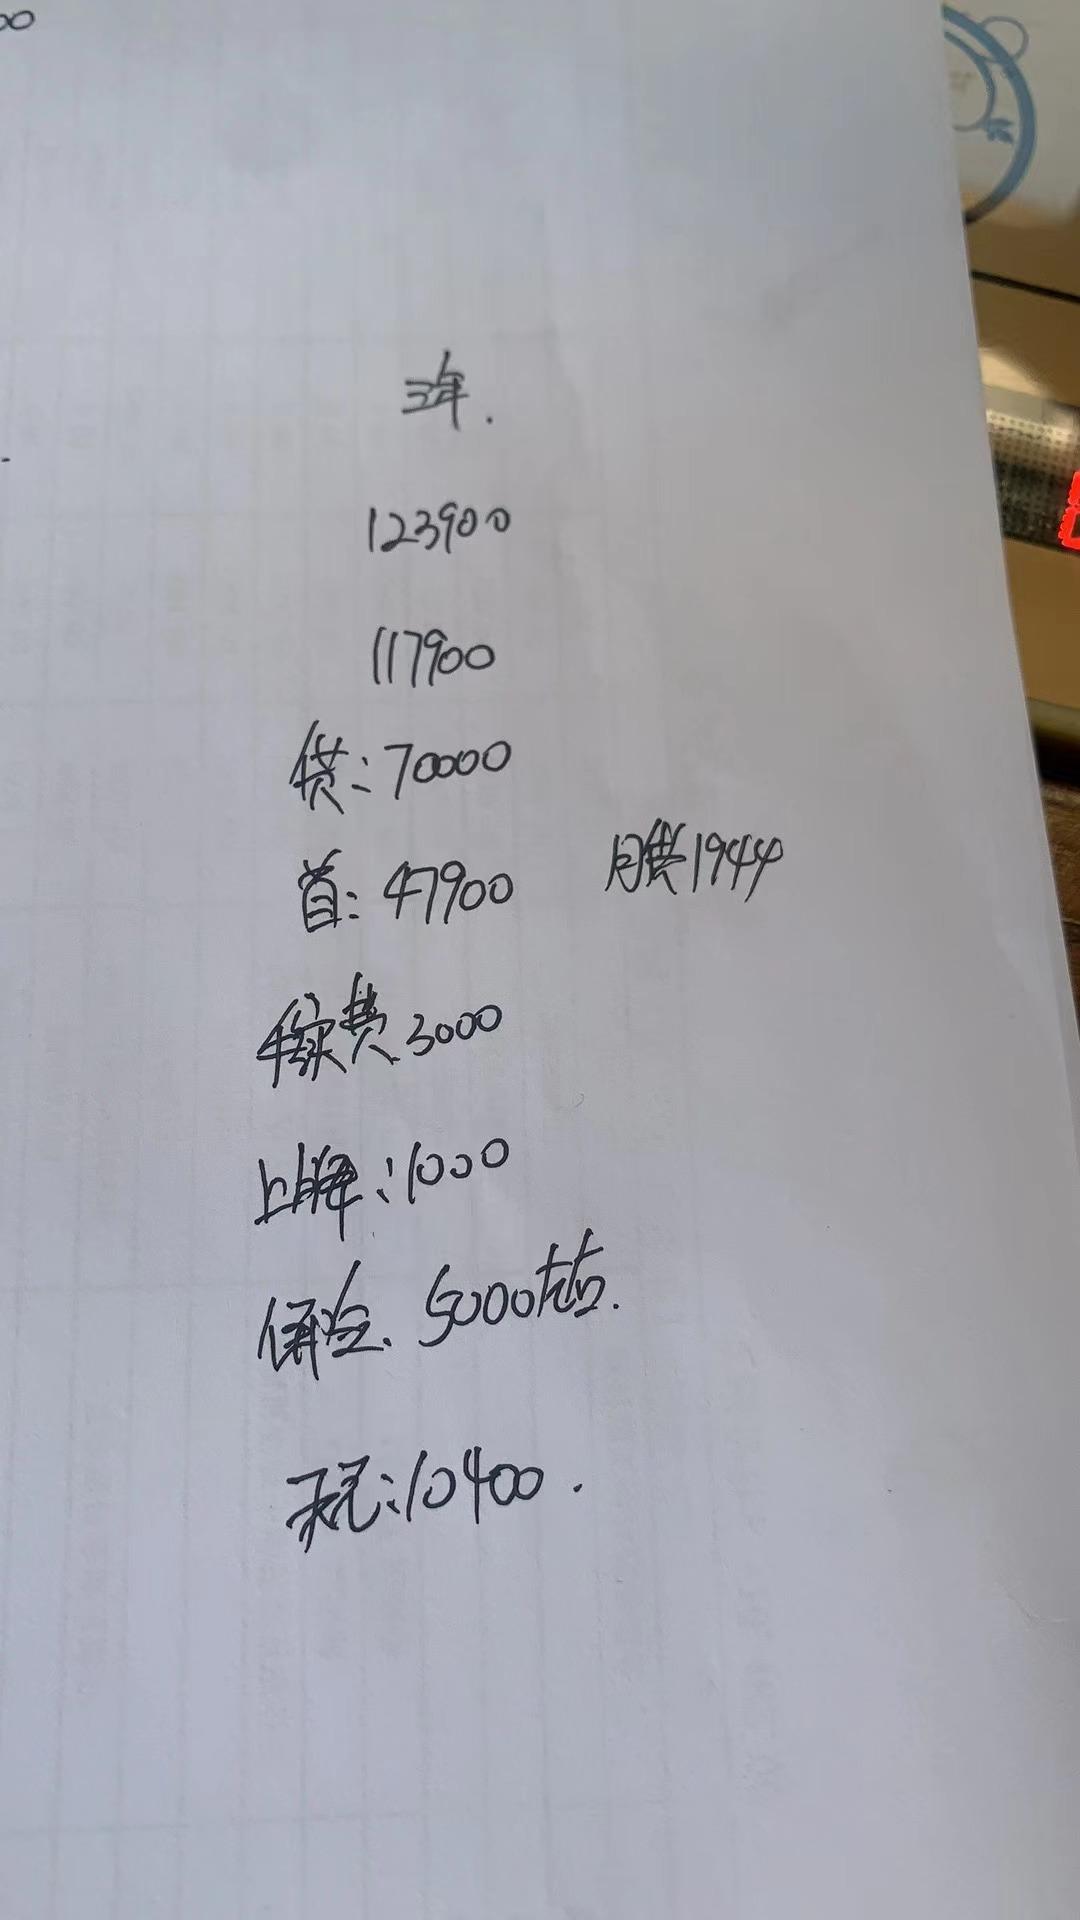 00
三年.
123900
117900
贷:70000
首:47900 月供1944
手续费3000
上牌:1000
保险.5000左右.
:10400.